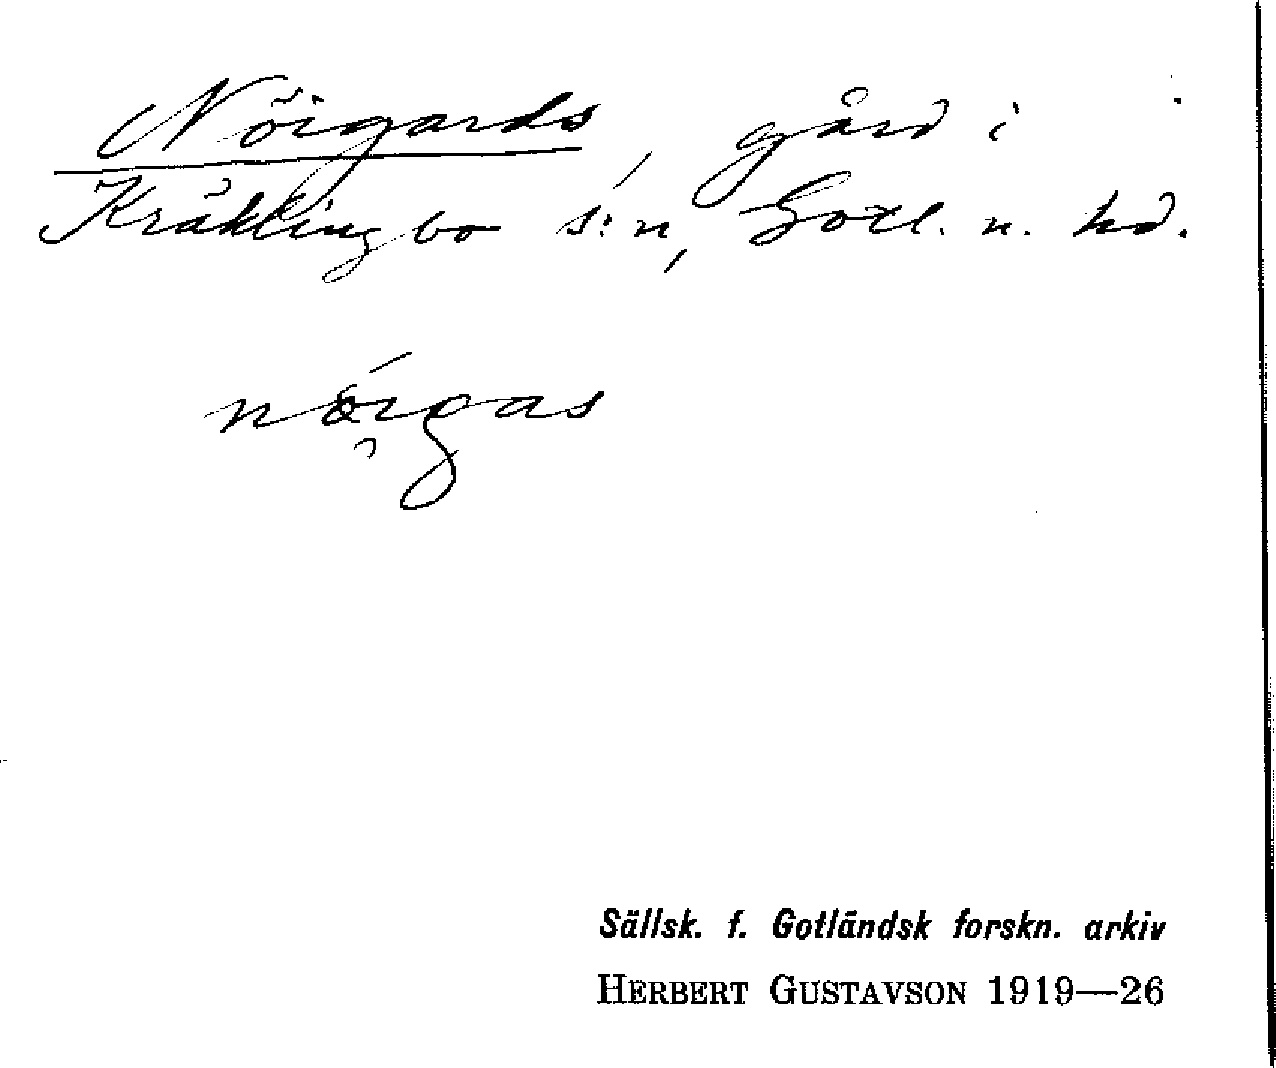 Nöigards, gård i
Kräklingbo s:n, Gotl. n. hd.
nöigas
Sällsk. f. Gotländsk forskn. arkiv
HERBERT GUSTAVSON 1919—26